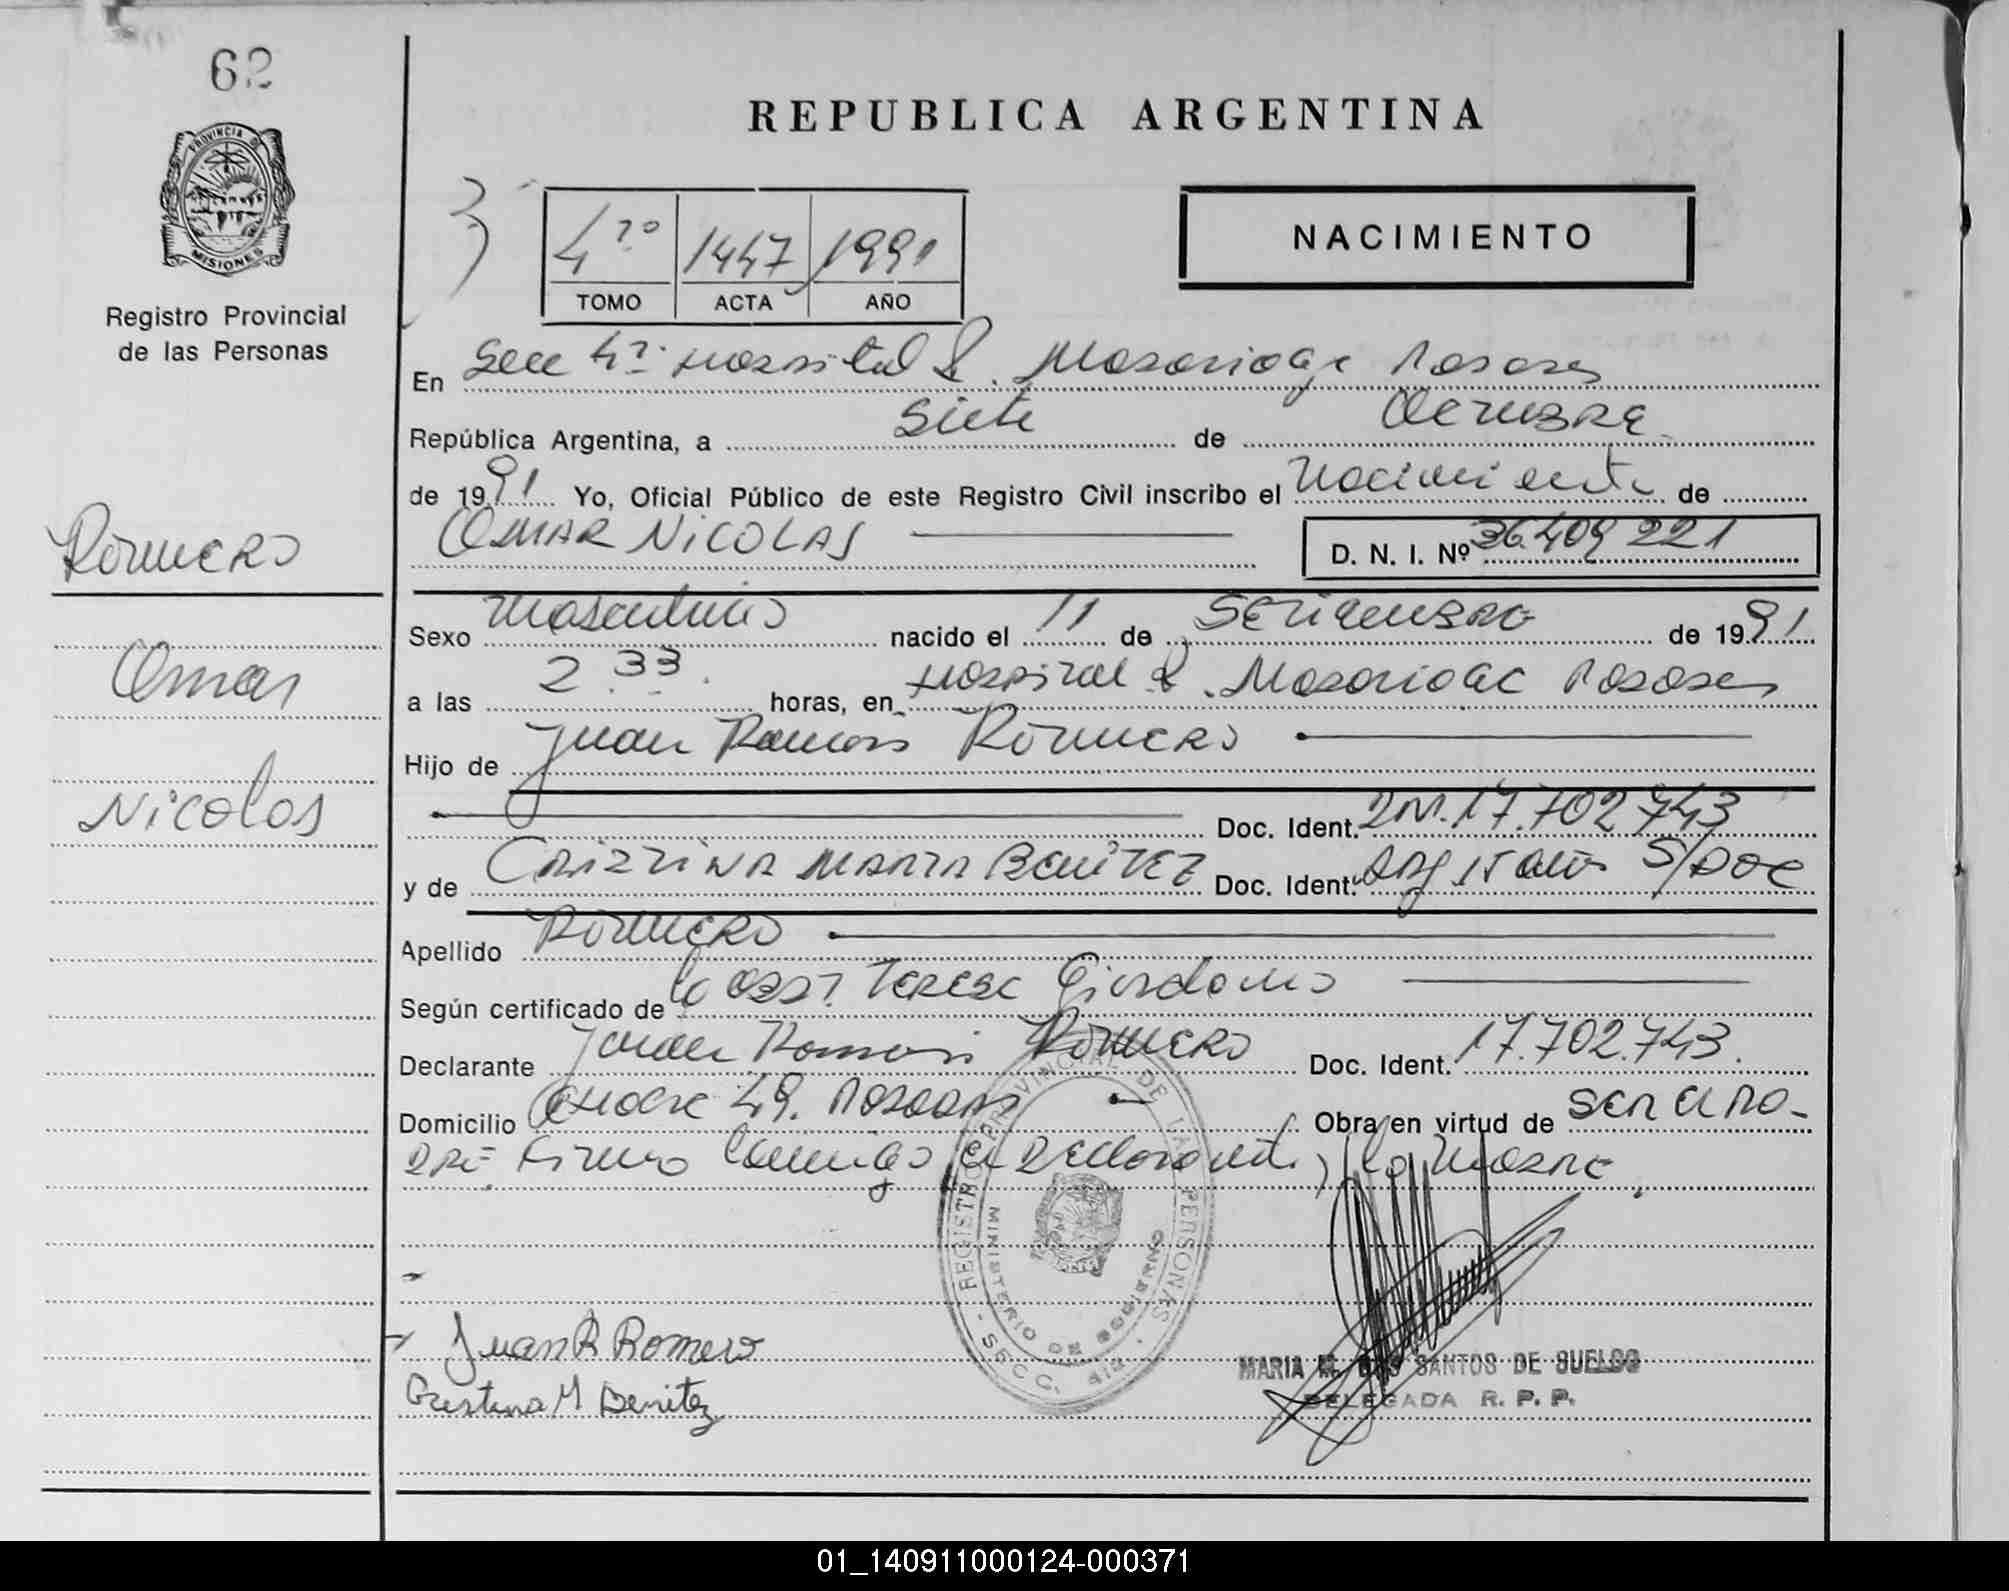 62
REPUBLICA ARGENTINA
PROVINCIA DE
MISIONES
Registro Provincial
de las Personas
4to 1447 1991
TOMO ACTA AÑO
NACIMIENTO
En Secc 4ta. Hospital R. Madariaga Posadas
República Argentina, a siete de Octubre
de 1991 Yo, Oficial Público de este Registro Civil inscribo el Nacimiento de
OMAR NICOLAS
D. N. I. Nº 36.409 221
Romero
Omar
Nicolas
Sexo Masculino nacido el 11 de Setiembre de 1991
a las 2.33. horas, en Hospital R. Madariaga Posadas
Hijo de Juan Ramon Romero
Doc. Ident. DNI.17.702.743
y de CRISTINA MARTA BENITEZ Doc. Ident. Arg S/DOC
Apellido Romero
Según certificado de la Obst. Teresa Giordano
Declarante Juan Ramon Romero Doc. Ident. 17.702.743.
Domicilio 49. Posadas Obra en virtud de ser el pa-
dre. Firma conmigo el declarante, la madre.
REGISTRO PROVINCIAL DE LAS PERSONAS
MINISTERIO DE GOBIERNO
SECC. 4ta
Juan R Romero
Cristina M Benitez
MARIA M. DOS SANTOS DE SUELDO
DELEGADA R. P. P.
01_140911000124-000371